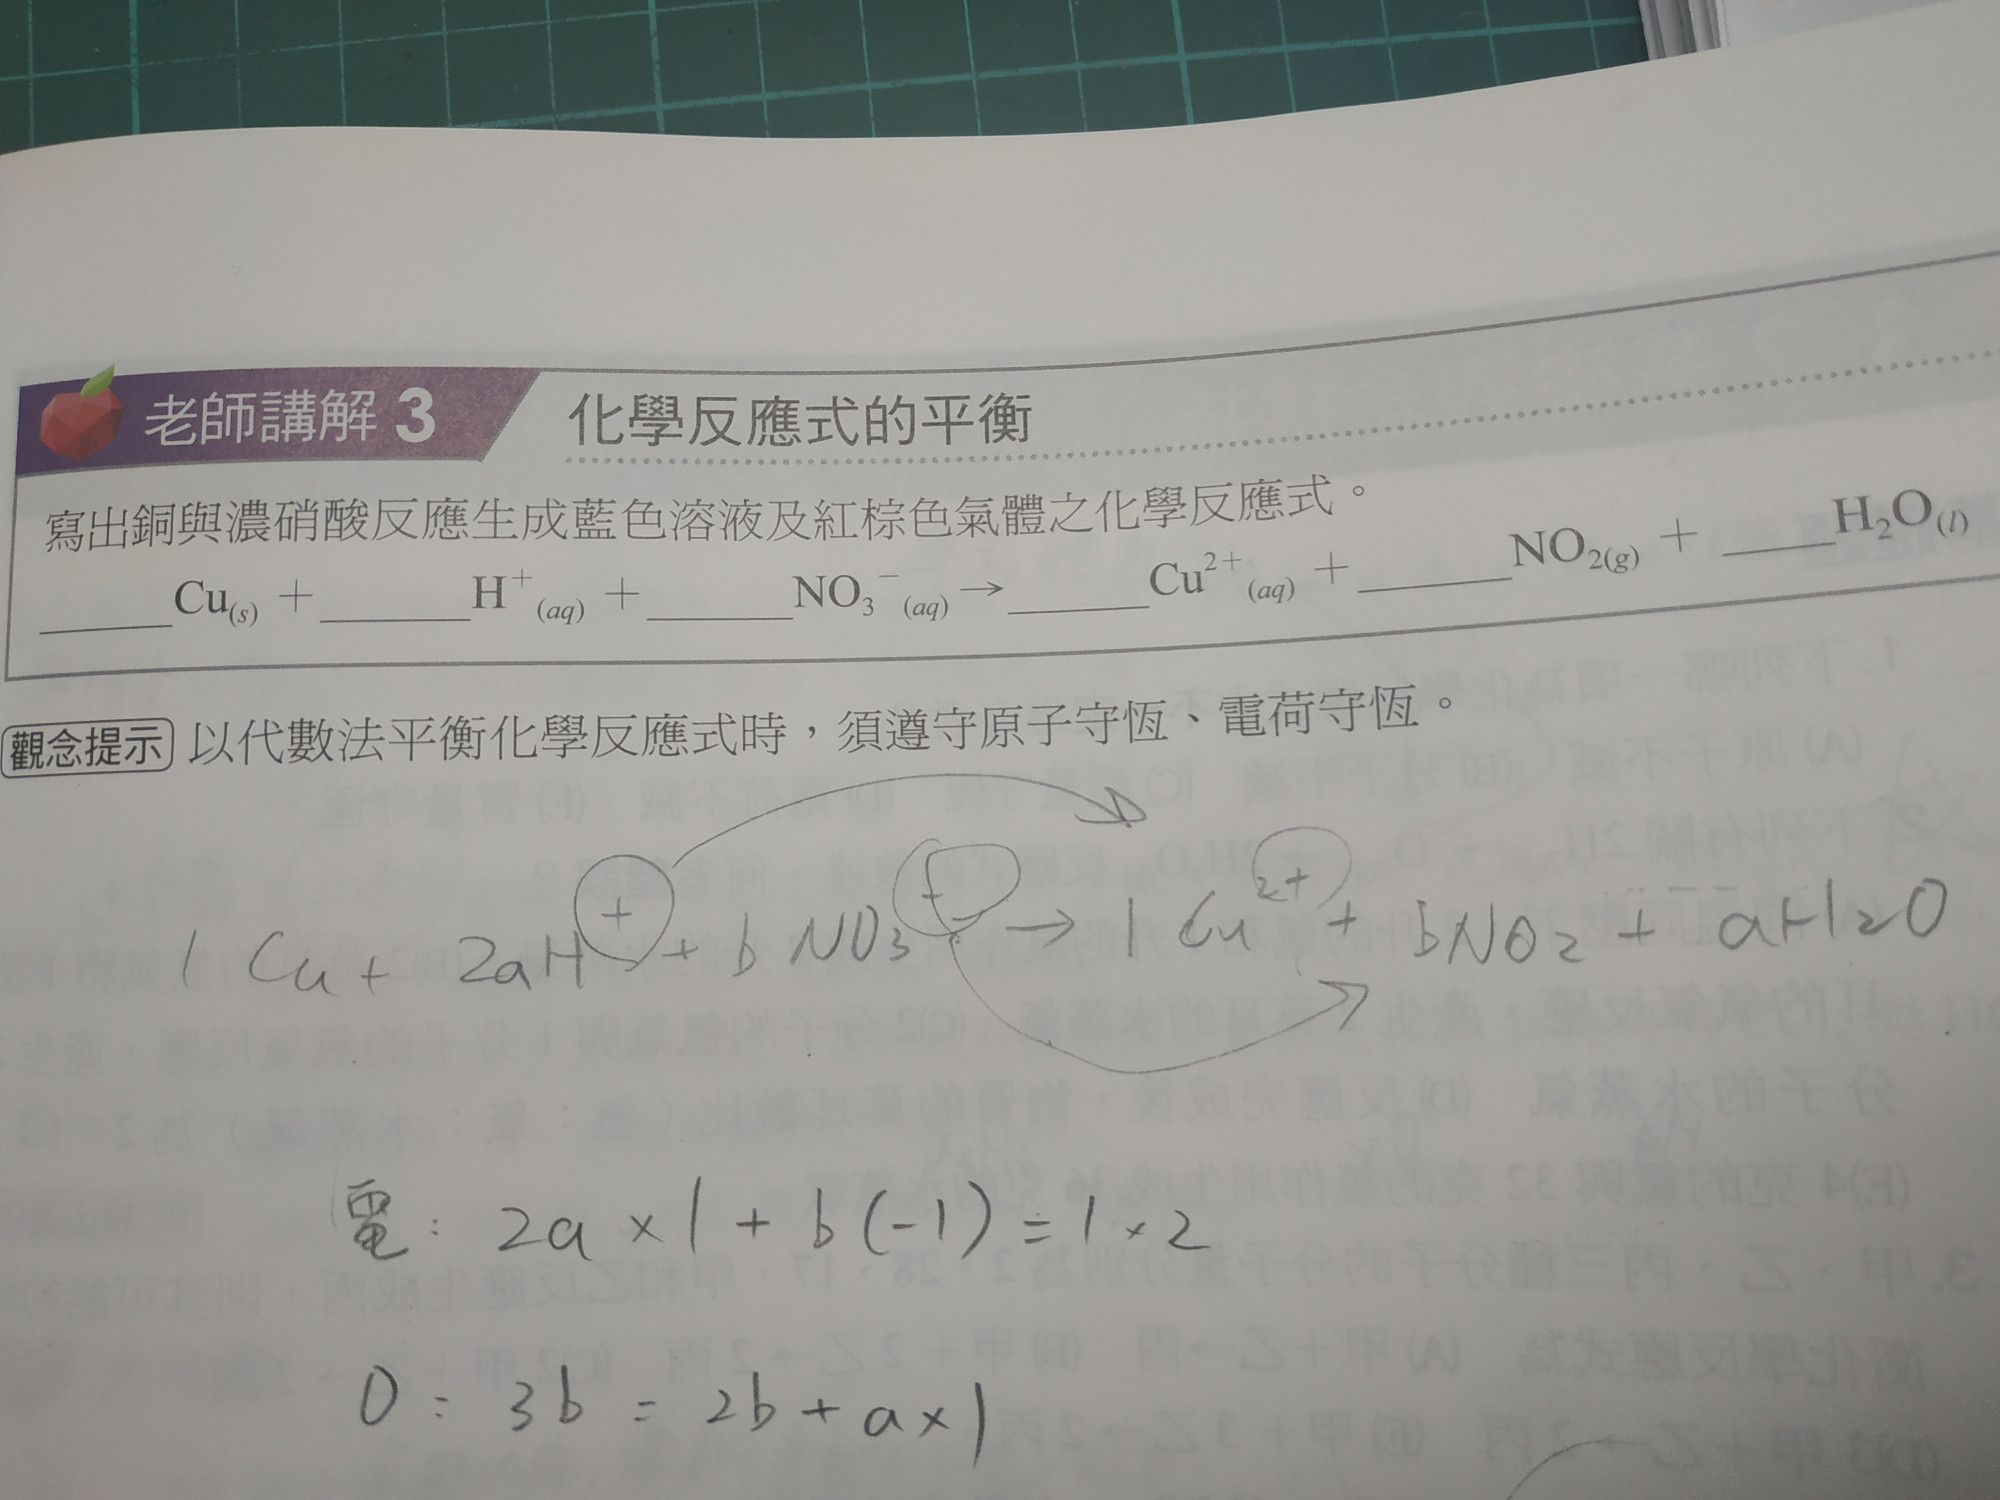 老師講解 3 化學反應式的平衡
寫出銅與濃硝酸反應生成藍色溶液及紅棕色氣體之化學反應式。
_____Cu(s) + _____H⁺(aq) + _____NO₃⁻(aq) → _____Cu²⁺(aq) + _____NO₂(g) + _____H₂O(l)
觀念提示 以代數法平衡化學反應式時，須遵守原子守恆、電荷守恆。
1 Cu + 2aH⁺ + b NO₃⁻ → 1 Cu²⁺ + bNO₂ + aH₂O
電: 2a × 1 + b (-1) = 1 × 2
O: 3b = 2b + a × 1